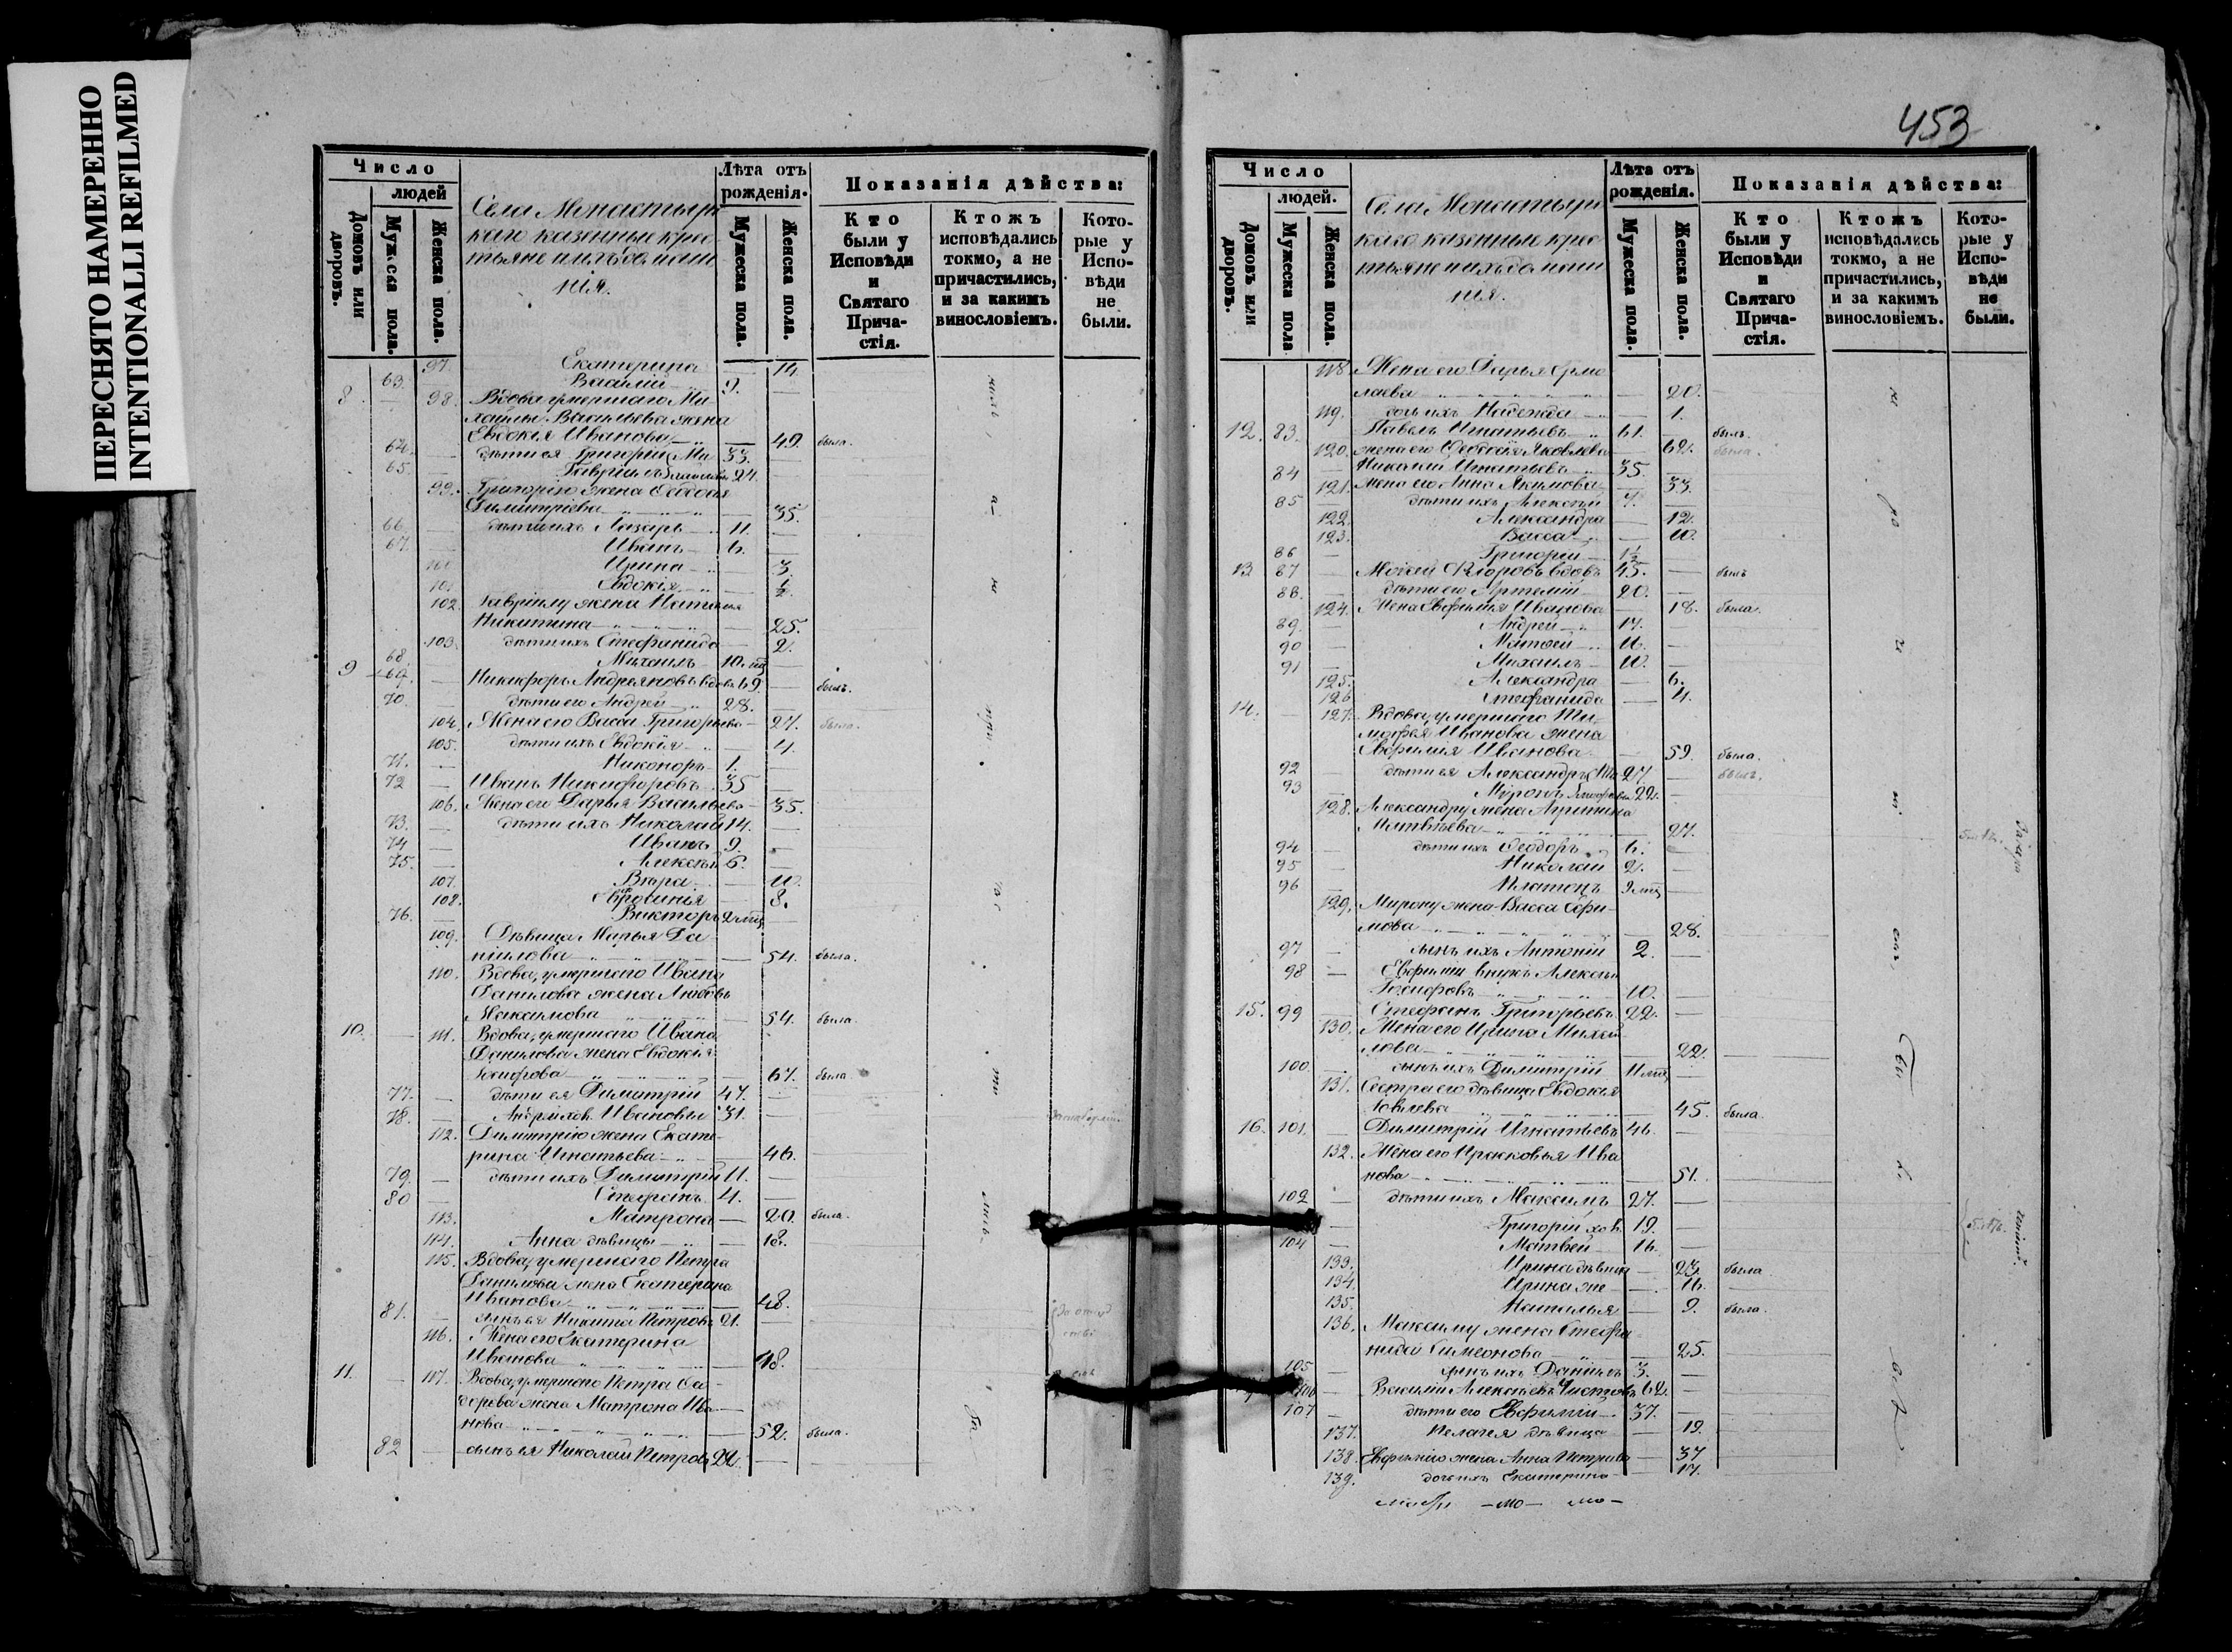 ПЕРЕСНЯТО НАМЕРЕННО
INTENTIONALLI REFILMED
Число
людей
Домовъ или дворовъ.
Мужеска пола.
Женска пола.
Села Монастыр
каго казенные крес
тьяне и ихъ домаш
нія.
Лѣта отъ
рожденія.
Мужеска пола.
Женска пола.
Показанія дѣйства:
Кто
были у
Исповѣди
и
Святаго
Прича-
стія.
Ктожъ
исповѣдались
токмо, а не
причастились,
и за какимъ
винословіемъ.
Кото-
рые у
Испо-
вѣди
не
были.
97 Екатерина — 14
63. Василій 9. —
8 — 98. Вдова умершаго Ми
хаилы Васильева жена
Евдокія Иванова — 49. была.
64. — дѣти ея Григорій Ми 33. —
65. — Гавріилъ 24. —
99. Григорію жена
Димитріева — 35.
66 — дѣти ихъ Лазарь 11. —
67. — Иванъ 6. —
100 Ирина — 3
101 Евдокія — ½.
102. Гавріилу жена Наталія
Никитина — 25.
103. дѣти ихъ Стефанида — 2.
68. Михаилъ 10. —
9 69. — Никифоръ Андреяновъ вдовъ 69. — былъ.
70. — дѣти его Андрей 28. —
104. Жена его Васса Григорьева — 27. была.
105. дѣти ихъ Евдокія — 4.
71. — Никоноръ 1. —
72 — Иванъ Никифоровъ 35 —
106. Жена его Дарья Васильева — 35.
73. — дѣти ихъ Николай 14. —
74 — Иванъ 9. —
75. — Алексѣй 6. —
107. Вѣра — 10.
108. — 8.
76. — Викторъ 2 мѣц —
109. Дѣвица Марья Да
ніилова — 54. была.
110. Вдова, умершаго Ивана
Данилова жена Любовь
Максимова — 54. была.
10. — 111. Вдова, умершаго Ивана
Данилова жена Евдокія
— 67. была
77. — дѣти ея Димитрій 47. —
78. — Ивановы 31. —
112. Димитрію жена Екате-
рина Игнатьева — 46.
79. — дѣти ихъ Димитрій 11. —
80 — Стефанъ 4. —
113. Матрона — 20. была.
114. Анна дѣвицы — 18.
115. Вдова, умершаго Петра
Данилова жена Екатерина
Иванова — 48.
81. — сынъ ея Никита Петровъ 21. —
116. Жена его Екатерина
Иванова — 18.
11. — 117. Вдова, умершаго Петра
жена Матрона Ива
нова — 52. была.
82 — сынъ ея Николай Петровъ 22. —
453
Число
людей.
Домовъ или дворовъ.
Мужеска пола
Женска пола.
Села Монастыр
каго казенные крес
тьяне и ихъ домаш
нія.
Лѣта отъ
рожденія.
Мужеска пола.
Женска пола.
Показанія дѣйства:
Кто
были у
Исповѣди
и
Святаго
Прича-
стія.
Ктожъ
исповѣдались
токмо, а не
причастились,
и за какимъ
винословіемъ.
Кото-
рые у
Испо-
вѣди
не
были.
118. Жена его Дарья Ермо
лаева — 20.
119. дочь ихъ Надежда — 1.
12. 83. Павелъ Игнатьевъ 61. — былъ.
120. жена его Яковлева — 62. была.
84 — Николай Игнатьевъ 35. —
121. Жена его Анна Якимова — 33.
85 — дѣти ихъ Алексѣй 7. —
122. Александра — 12.
123. Васса — 10.
86 — Григорій 1½ —
13 87 — Флоровъ вдовъ 45. — былъ
88. — дѣти его 20. —
124. Жена Евфимія Иванова — 18. была.
89. — Андрей 17. —
90 — Матѳей 11. —
91 — Михаилъ 10. —
125. Александра — 6.
126. Стефанида — 4.
14. — 127. Вдова, умершаго Ти
мофея Иванова жена
Евфимія Иванова — 59. была.
92 — дѣти ея Александръ 27. — былъ.
93 — Миронъ 22. —
128. Александру жена
Матвѣева — 27.
94 — дѣти ихъ Ѳеодоръ 6. —
95 — Николай 2. —
96 — Платонъ 9 мѣц —
129. Мирону жена Васса Ефи
мова — 28.
97 — сынъ ихъ Антоній 2. —
98 — Евфиміи внукъ Алексѣй
10. —
15. 99 — Стефанъ Григорьевъ 22. —
130. Жена его Ирина Михай
лова — 22.
100 — сынъ ихъ Димитрій 11 мѣц —
131. Сестра его дѣвица Евдокія
— 45. была.
16. 101. — Димитрій Игнатьевъ 46. —
132. Жена его Прасковья Ива
нова — 51.
102 — дѣти ихъ Максимъ 27. —
— Григорій 19. —
104 — Матвей 16. —
133. Ирина дѣвица — 23. была
134. Ирина же — 11.
135. Наталья — 9. была.
136. Максиму жена Стефа
нида Симеонова — 25.
105 — сынъ ихъ Даніилъ 3. —
106 — Василій Алексѣевъ 62. —
107 — дѣти его Евфимій 37. —
137. Пелагея дѣвица — 19.
138. Евфимію жена Анна Петрова — 37
139. дочь ихъ Екатерина — 17.